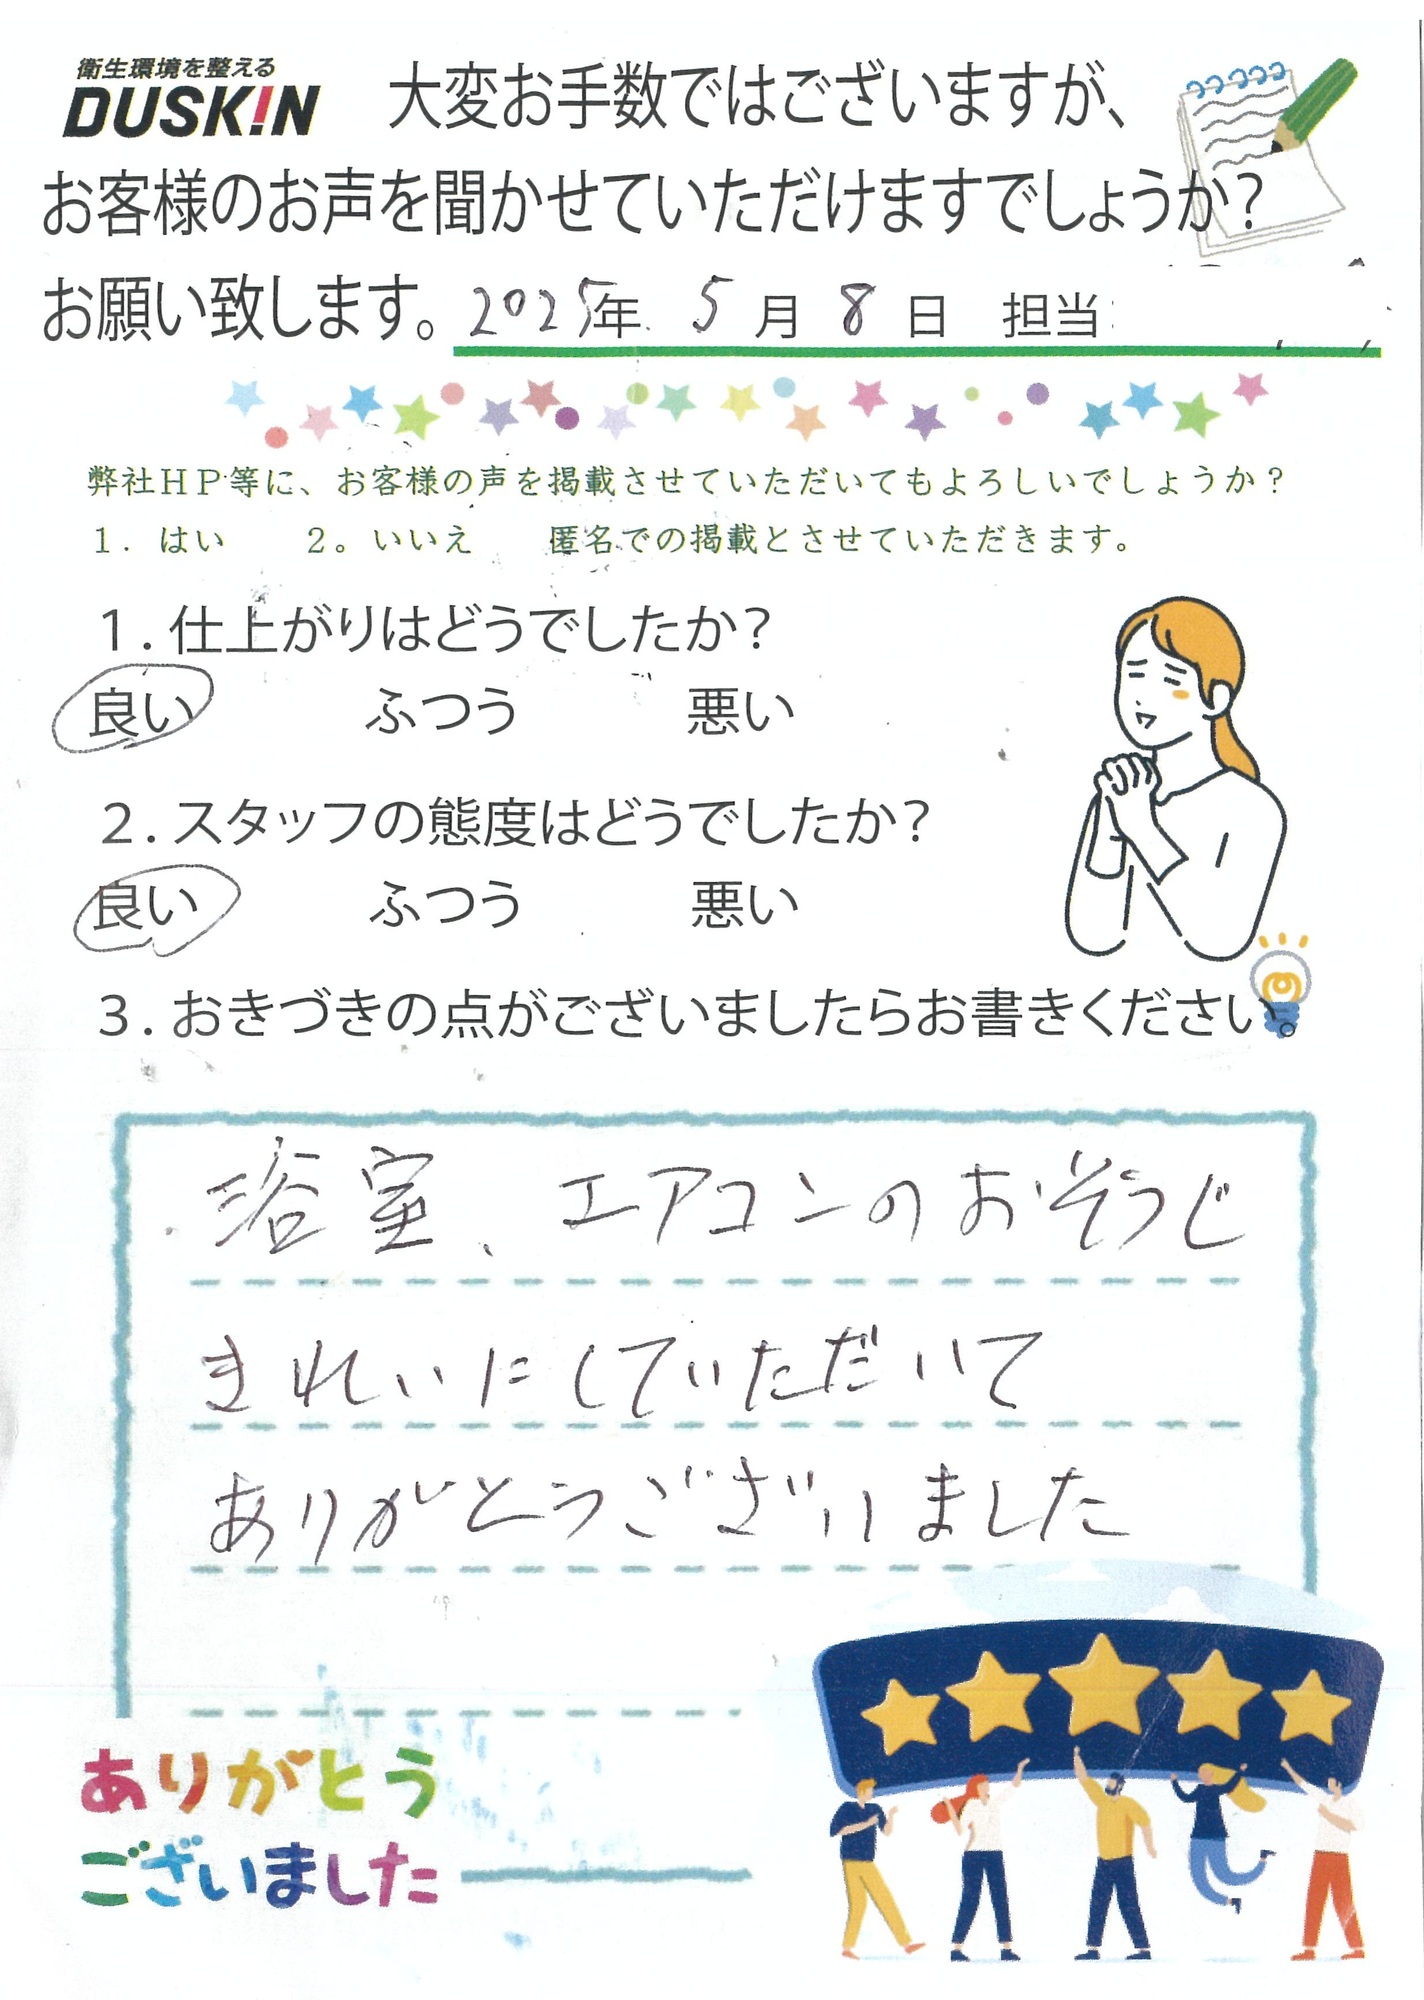 衛生環境を整える
DUSKIN
大変お手数ではございますが、
お客様のお声を聞かせていただけますでしょうか?
お願い致します。2025年 5月8日 担当:
弊社HP等に、お客様の声を掲載させていただいてもよろしいでしょうか?
1. はい 2。いいえ 匿名での掲載とさせていただきます。
1.仕上がりはどうでしたか?
良い ふつう 悪い
2.スタッフの態度はどうでしたか?
良い ふつう 悪い
3.おきづきの点がございましたらお書きください。
浴室、エアコンのおそうじ
きれいにしていただいて
ありがとうございました
ありがとう
ございました